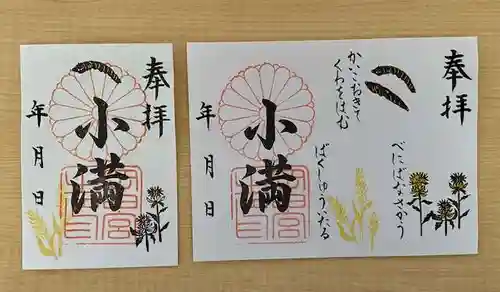 奉拝
小満
年月日
奉拝
かいこおきて
くわをはむ
べにばなさかう
小満
ばくしゅういたる
年月日